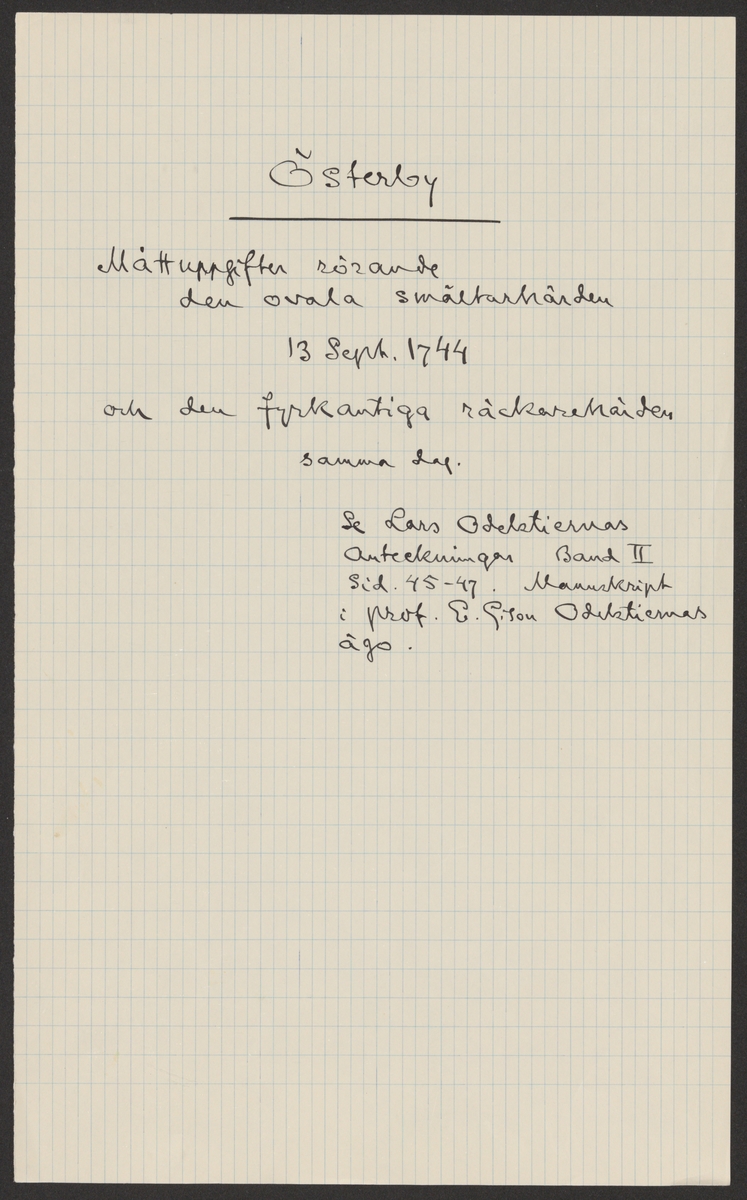 Österby
Måttuppgifter rörande
den ovala smältarhärden
13 Sept. 1744
och den fyrkantiga räckarehärden
samma dag.
Se Lars Odelstiernas
Anteckningar Band II
Sid. 45-47. Manuskript
i prof. E. G:son Odelstiernas
ägo.